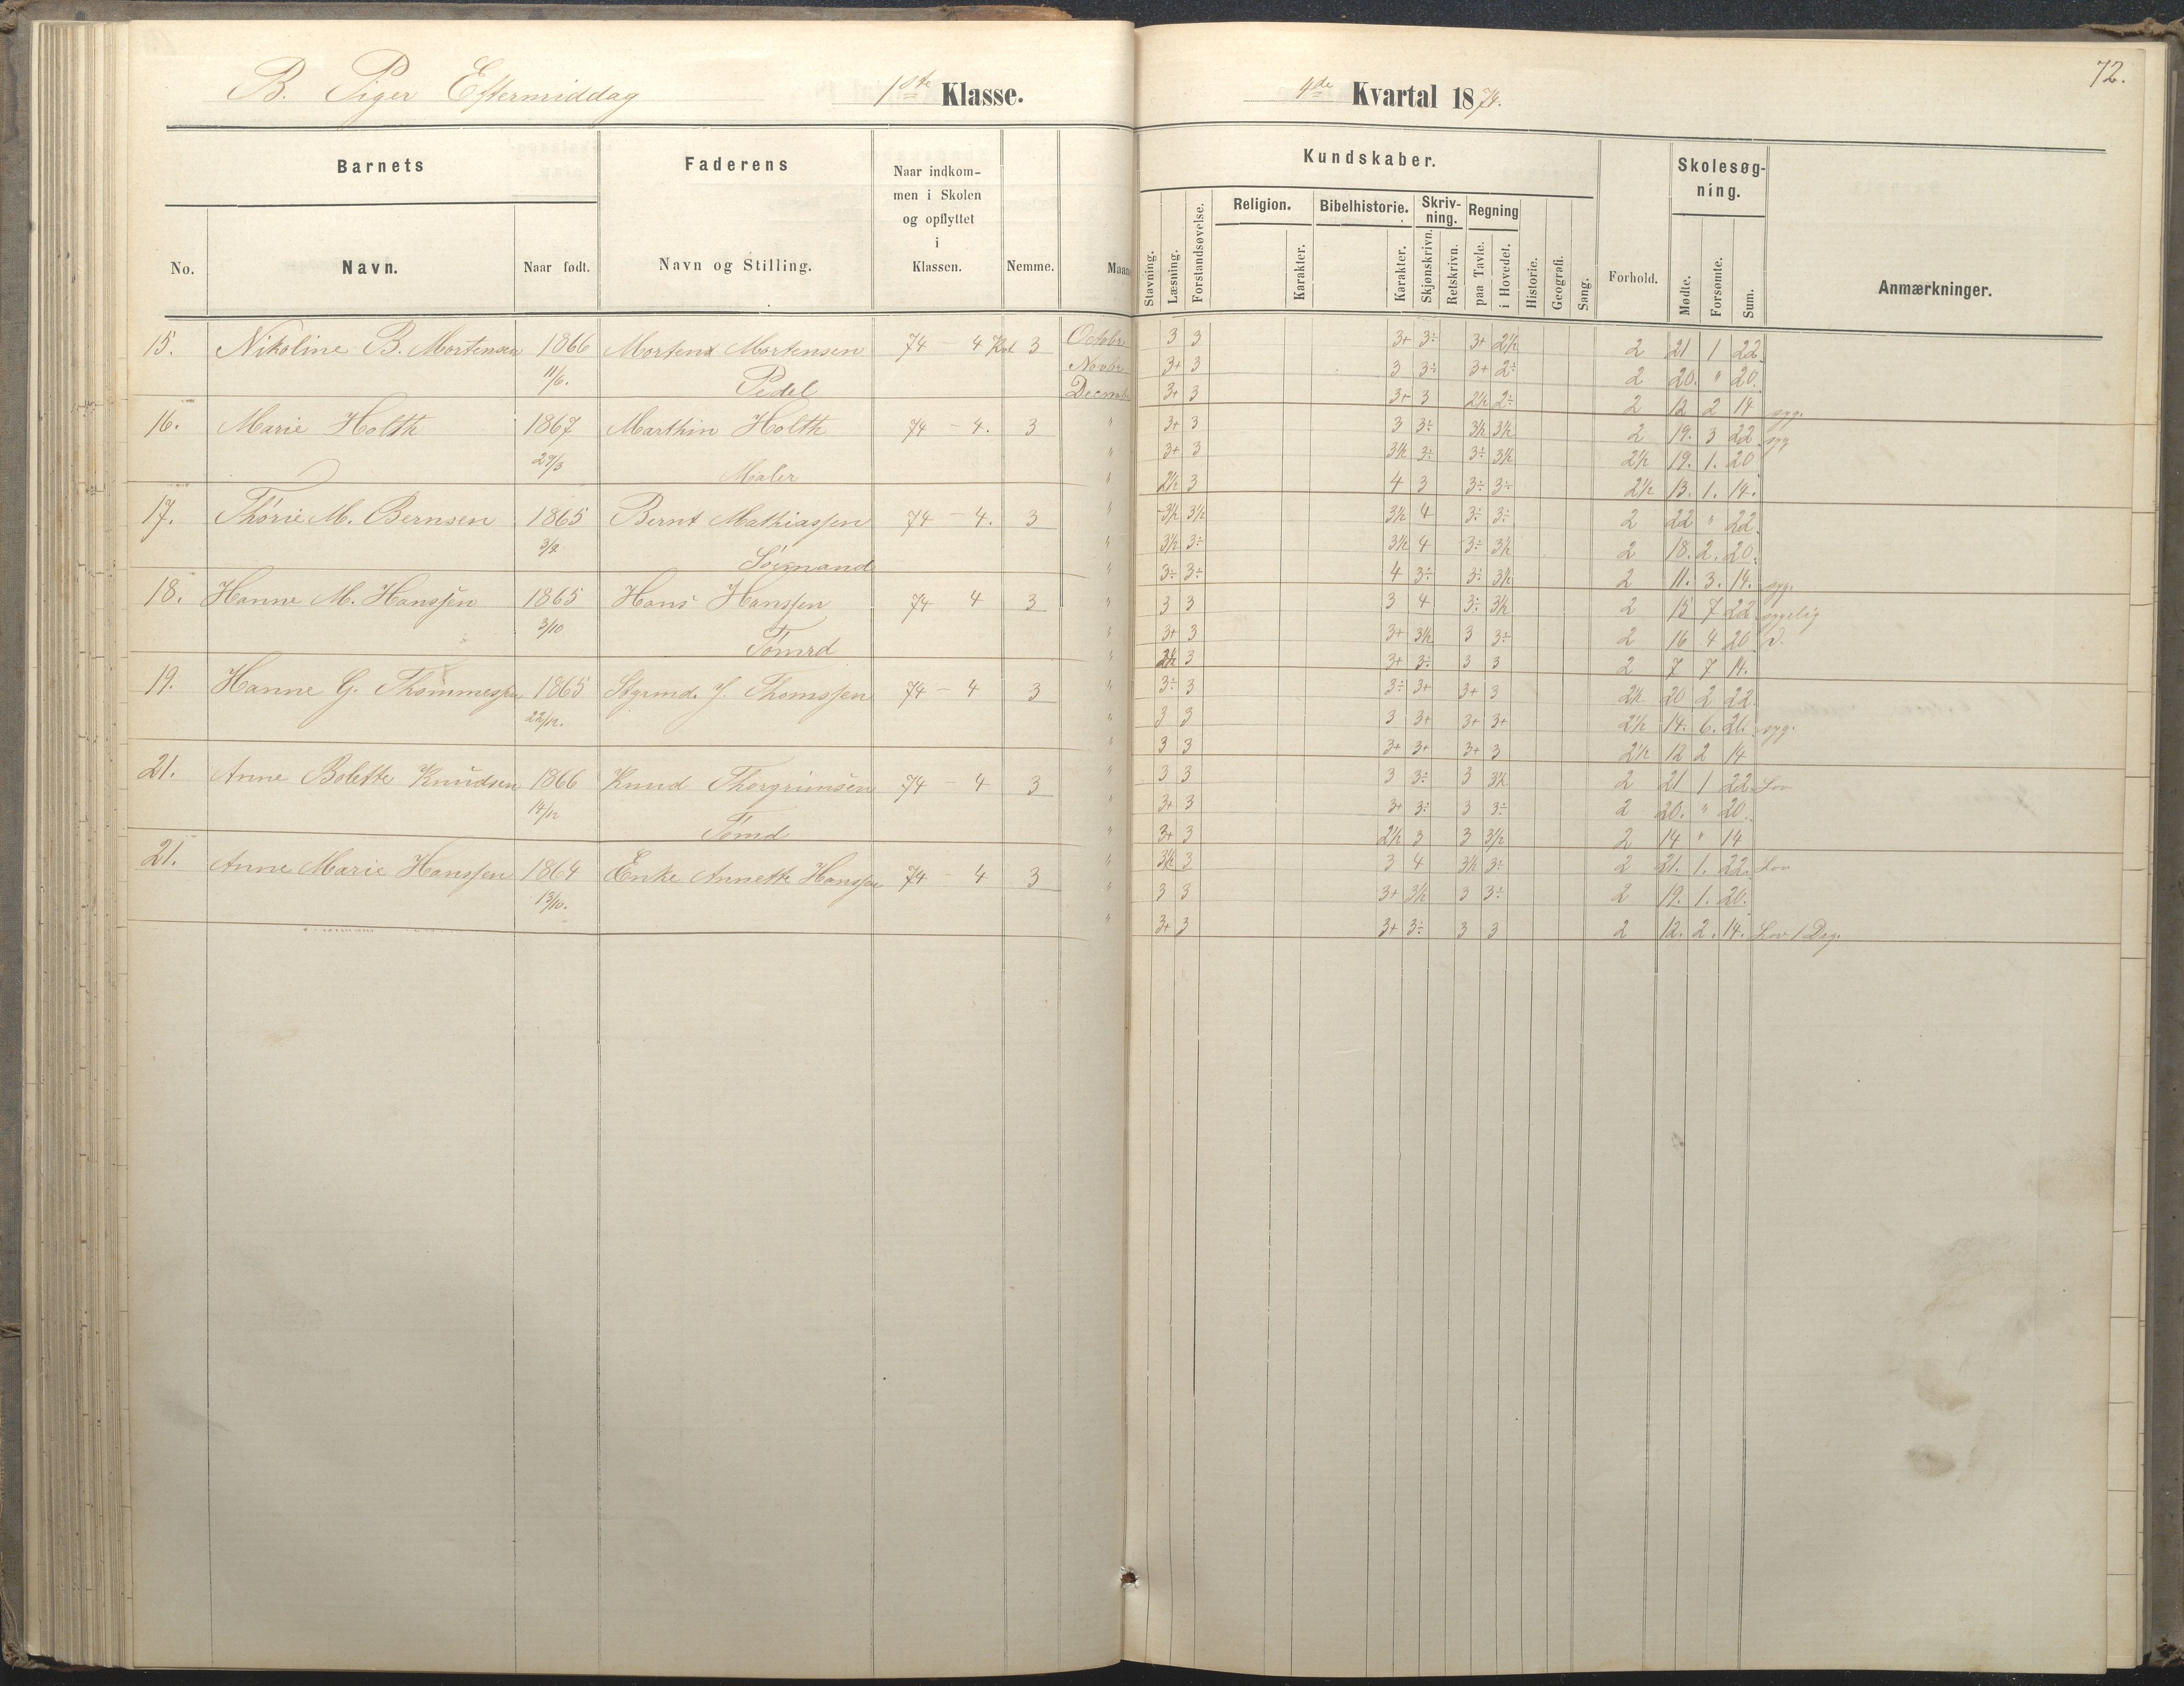 72.
B. Piger Eftermiddag 1ste Klasse. 4de Kvartal 1874.
Barnets Faderens Naar indkommen i Skolen og opflyttet i Klassen. Kundskaber. Skolesøgning.
No. Navn. Naar født. Navn og Stilling. Nemme. Maan Stavning. Læsning. Forstandsøvelse. Religion. Karakter. Bibelhistorie. Karakter. Skrivning. Skjønskrivn. Retskrivn. Regning paa Tavle. i Hovedet. Historie. Geografi. Sang. Forhold. Mødte. Forsømte. Sum. Anmærkninger.
15. Nikoline B. Mortensen 1866 Mortens Mortensen 74 - 4 Kvt 3 Octobr 3 3 3+ 3÷ 3+ 2½ 2 21 1 22
11/6. Pedel Novbr 3+ 3 3 3÷ 3+ 2÷ 2 20. " 20.
Decmbr 3+ 3 3+ 3 2½ 2÷ 2 12 2 14 syg.
16. Marie Holth 1867 Marthin Holth 74 - 4. 3 " 3+ 3 3 3÷ 3½ 3½ 2 19. 3 22 syg
29/3 Maler " 3+ 3 3½ 3÷ 3÷ 3½ 2½ 19. 1. 20
" 2½ 3 4 3 3÷ 3÷ 2½ 13. 1. 14.
17. Thorie M. Bernsen 1865 Bernt Mathiassen 74 - 4. 3 " 3½ 3½ 3½ 4 3÷ 3÷ 2 22 " 22.
3/2 Sømand " 3½ 3÷ 3½ 4 3÷ 3½ 2 18. 2. 20.
" 3÷ 3÷ 4 3÷ 3÷ 3½ 2 11. 3. 14. syg.
18. Hanne M. Hanssen 1865 Hans Hanssen 74 4 3 " 3 3 3 4 3÷ 3½ 2 15 7 22 sygelig
3/10 Tømrd " 3+ 3 3+ 3½ 3 3÷ 2 16 4 20
" 2½ 3 3+ 3÷ 3 3 2 7 7 14.
19. Hanne G. Thommessen 1865 Styrmd. J. Thomssen 74 - 4 3 " 3÷ 3 3÷ 3+ 3+ 3 2½ 20 2 22
22/12. " 3 3 3 3+ 3+ 3+ 2½ 14. 6. 20. syg.
" 3 3 3+ 3+ 3+ 3 2½ 12 2 14
21. Anne Bolette Knudsen 1866 Knud Thorgrimsen 74 - 4 3 " 3 3 3 3÷ 3 3½ 2 21 1 22 Lov
14/12 Tømd " 3+ 3 3+ 3÷ 3 3÷ 2 20. " 20.
" 3+ 3 2½ 3 3 3½ 2 14 " 14
21. Anne Marie Hanssen 1864 Enke Annette Hanssen 74 - 4 3 " 3½ 3 3 4 3½ 3÷ 2 21. 1. 22. Lov
13/10. " 3 3 3+ 3½ 3 3÷ 2 19. 1. 20.
" 3+ 3 3+ 3÷ 3 3 2 12. 2. 14. Lov 1 Dag.